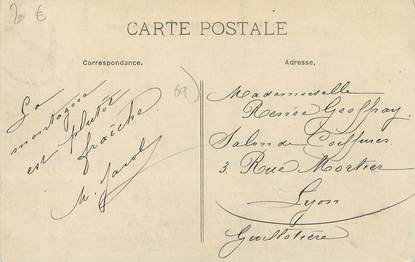 20 €
CARTE POSTALE
Correspondance.
La
montagne
est plutôt
fraîche.
M.
69
Adresse.
Mademoiselle
Renée Geoffray
Salon de Coiffures
3. Rue Mortier
Lyon
Guillotière